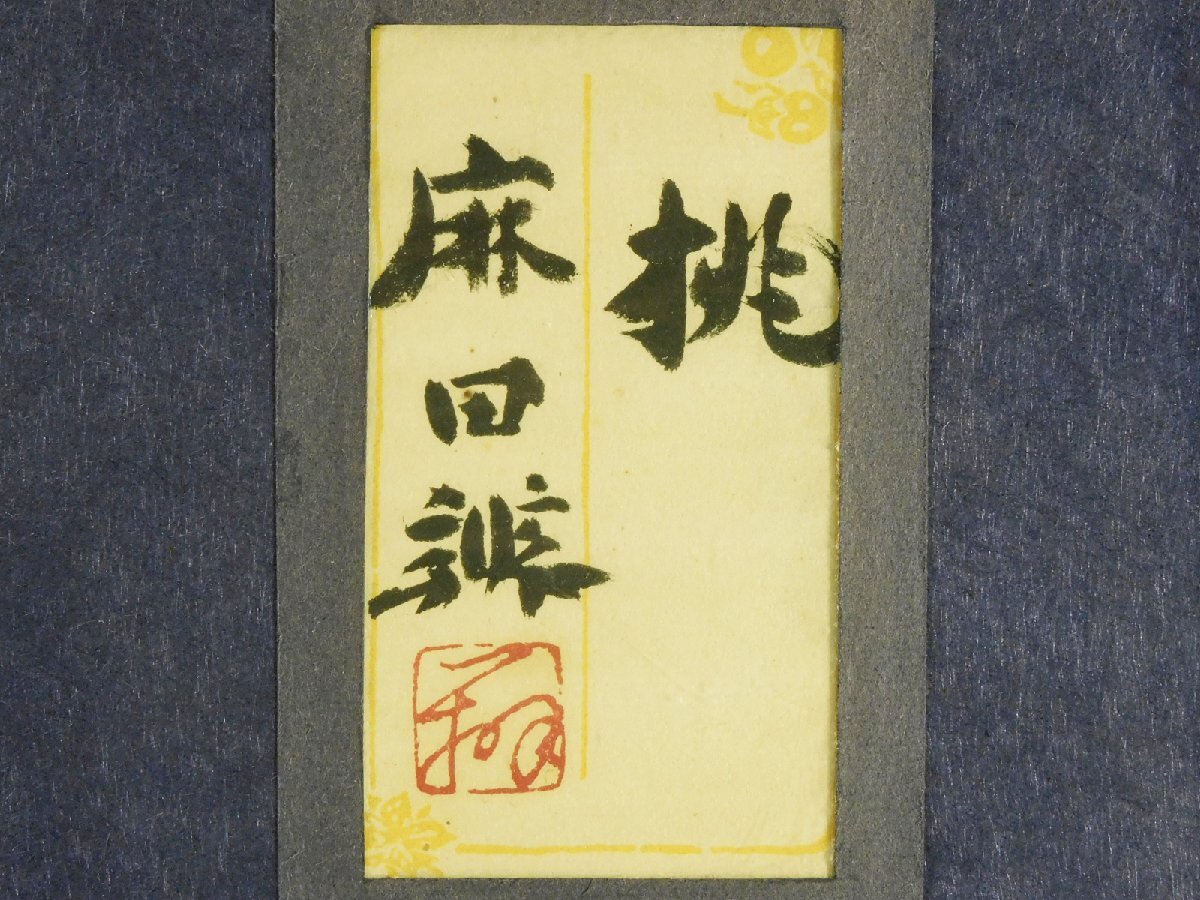 桃
麻田辨